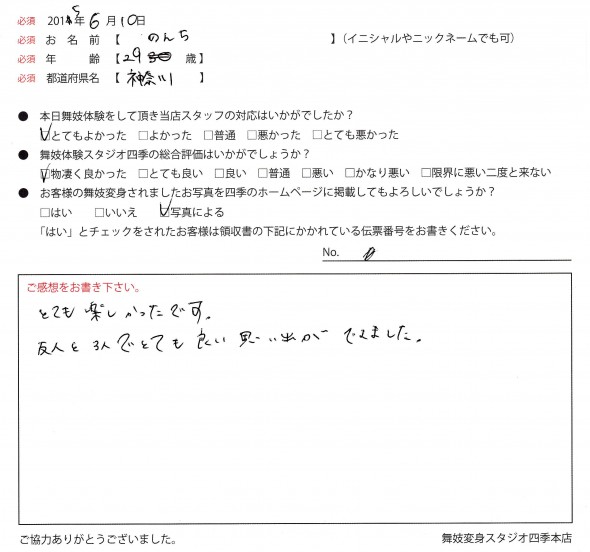 必須 2015年 6月 10日
必須 お名前【 のんち 】(イニシャルやニックネームでも可)
必須 年齢【29 歳】
必須 都道府県名【 神奈川 】
● 本日舞妓体験をして頂き当店スタッフの対応はいかがでしたか?
☑とてもよかった □よかった □普通 □悪かった □とても悪かった
● 舞妓体験スタジオ四季の総合評価はいかがでしょうか?
☑物凄く良かった □とても良い □良い □普通 □悪い □かなり悪い □限界に悪い二度と来ない
● お客様の舞妓変身されましたお写真を四季のホームページに掲載してもよろしいでしょうか?
□はい □いいえ ☑写真による
「はい」とチェックをされたお客様は領収書の下記にかかれている伝票番号をお書きください。
No.
ご感想をお書き下さい。
とても楽しかったです。
友人と3人でとても良い思い出ができました。
ご協力ありがとうございました。
舞妓変身スタジオ四季本店